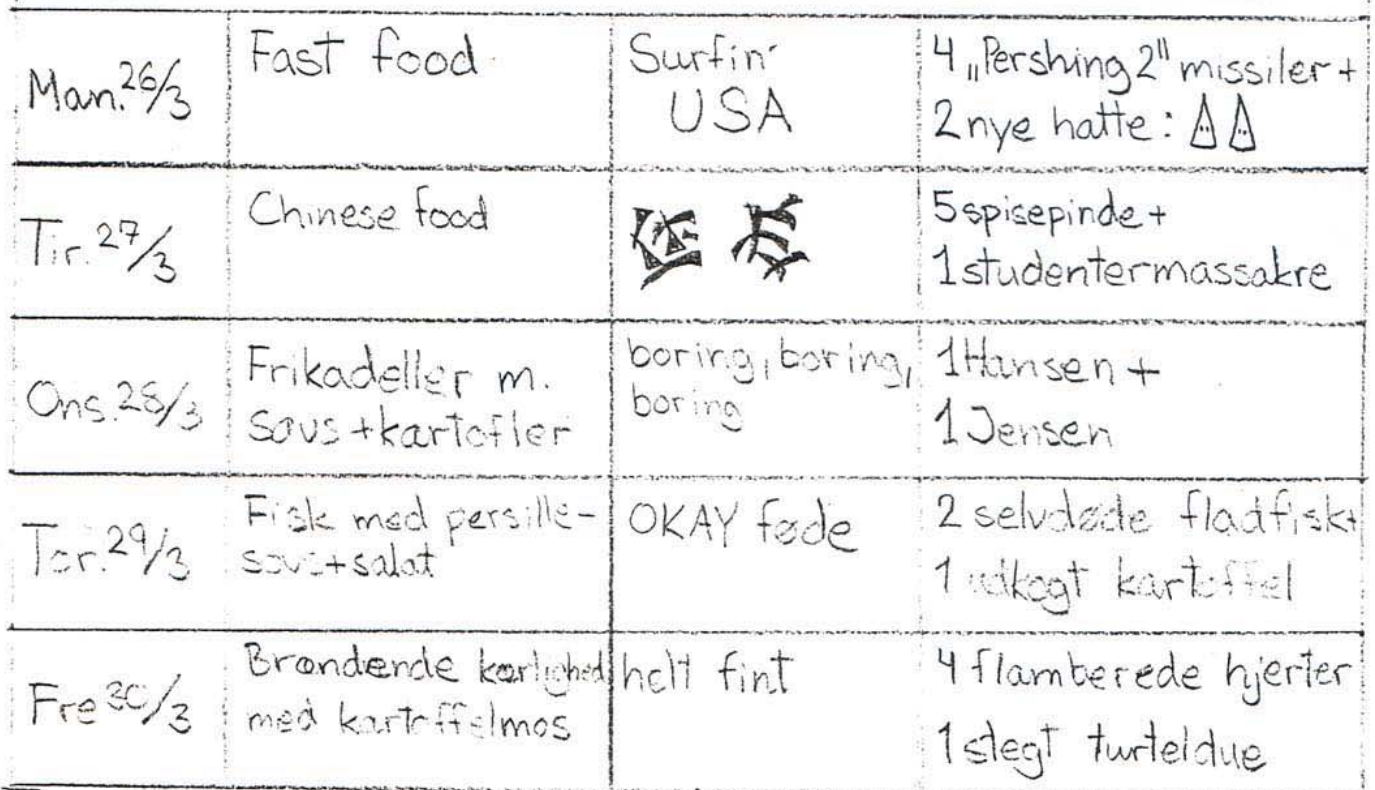 Man. 26/3
Fast food
Surfin'
USA
4 „Pershing 2" missiler +
2 nye hatte:
Tir. 27/3
Chinese food
5 spisepinde +
1 studentermassakre
Ons. 28/3
Frikadeller m.
sovs + kartofler
boring, boring,
boring
1 Hansen +
1 Jensen
Tor. 29/3
Fisk med persille-
sovs + salat
OKAY føde
2 selvdøde fladfisk+
1 udkogt kartoffel
Fre 30/3
Brændende kærlighed
med kartoffelmos
helt fint
4 flamberede hjerter
1 stegt turteldue